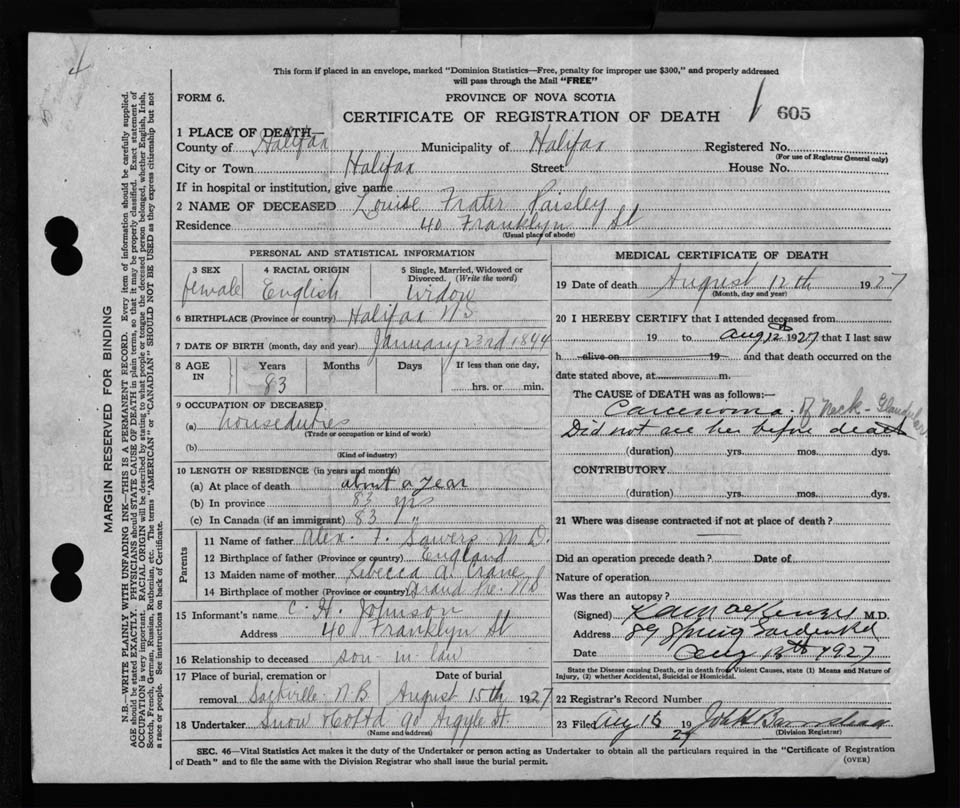 4
This form if placed in an envelope, marked "Dominion Statistics—Free, penalty for improper use $300," and properly addressed
will pass through the Mail "FREE"
FORM 6.
PROVINCE OF NOVA SCOTIA
CERTIFICATE OF REGISTRATION OF DEATH
605
1 PLACE OF DEATH—
County of Halifax Municipality of Halifax Registered No.
(For use of Registrar General only)
City or Town Halifax Street House No.
If in hospital or institution, give name
2 NAME OF DECEASED Louise Frater Paisley
Residence 40 Franklyn St
(Usual place of abode)
PERSONAL AND STATISTICAL INFORMATION
3 SEX 4 RACIAL ORIGIN 5 Single, Married, Widowed or
Divorced. (Write the word)
female English Widow
6 BIRTHPLACE (Province or country) Halifax N S
7 DATE OF BIRTH (month, day and year) January 23rd 1844
8 AGE IN Years Months Days If less than one day,
83 hrs. or min.
9 OCCUPATION OF DECEASED
(a) houseduties
(Trade or occupation or kind of work)
(b)
(Kind of industry)
10 LENGTH OF RESIDENCE (in years and months)
(a) At place of death about a year
(b) In province 83 yrs
(c) In Canada (if an immigrant) 83 "
Parents
11 Name of father Alex. F. Sawers M.D.
12 Birthplace of father (Province or country) England
13 Maiden name of mother Rebecca A. Crane
14 Birthplace of mother (Province or country) Grand Pre. N S
15 Informant's name C. H. Johnson
Address 40 Franklyn St
16 Relationship to deceased son-in-law
17 Place of burial, cremation or Date of burial
removal Sackville N.B. August 15th 1927
18 Undertaker Snow & Co Ltd 90 Argyle St.
(Name and address)
MEDICAL CERTIFICATE OF DEATH
19 Date of death August 12th 1927
(Month, day and year)
20 I HEREBY CERTIFY that I attended deceased from
19 to Aug 12th 1927 that I last saw
h alive on 19 and that death occurred on
date stated above, at m.
The CAUSE of DEATH was as follows:—
Carcenoma of Neck - Glandular
Did not see her before death
(duration) yrs. mos. dys.
CONTRIBUTORY
(duration) yrs. mos. dys.
21 Where was disease contracted if not at place of death?
Did an operation precede death? Date of
Nature of operation
Was there an autopsy?
(Signed) MacKenzie M.D.
Address 89 Spring Garden Rd
Date Aug 13th 1927
State the Disease causing Death, or in death from Violent Causes, state (1) Means and Nature of
Injury, (2) whether Accidental, Suicidal or Homicidal.
22 Registrar's Record Number
23 Filed Aug 16 1927
(Division Registrar)
SEC. 46—Vital Statistics Act makes it the duty of the Undertaker or person acting as Undertaker to obtain all the particulars required in the "Certificate of Registration
of Death" and to file the same with the Division Registrar who shall issue the burial permit.
(OVER)
MARGIN RESERVED FOR BINDING
N.B.—WRITE PLAINLY WITH UNFADING INK—THIS IS A PERMANENT RECORD. Every item of information should be carefully supplied.
AGE should be stated EXACTLY. PHYSICIANS should STATE CAUSE OF DEATH in plain terms, so that it may be properly classified. Exact statement of
OCCUPATION is very important. RACIAL ORIGIN will be described by stating to what people or tongue the deceased person belonged, whether English, Irish,
Scotch, French, German, Russian, Ruthenian, etc. The terms "AMERICAN" or "CANADIAN" SHOULD NOT BE USED as they express citizenship but not
a race or people. See instructions on back of Certificate.